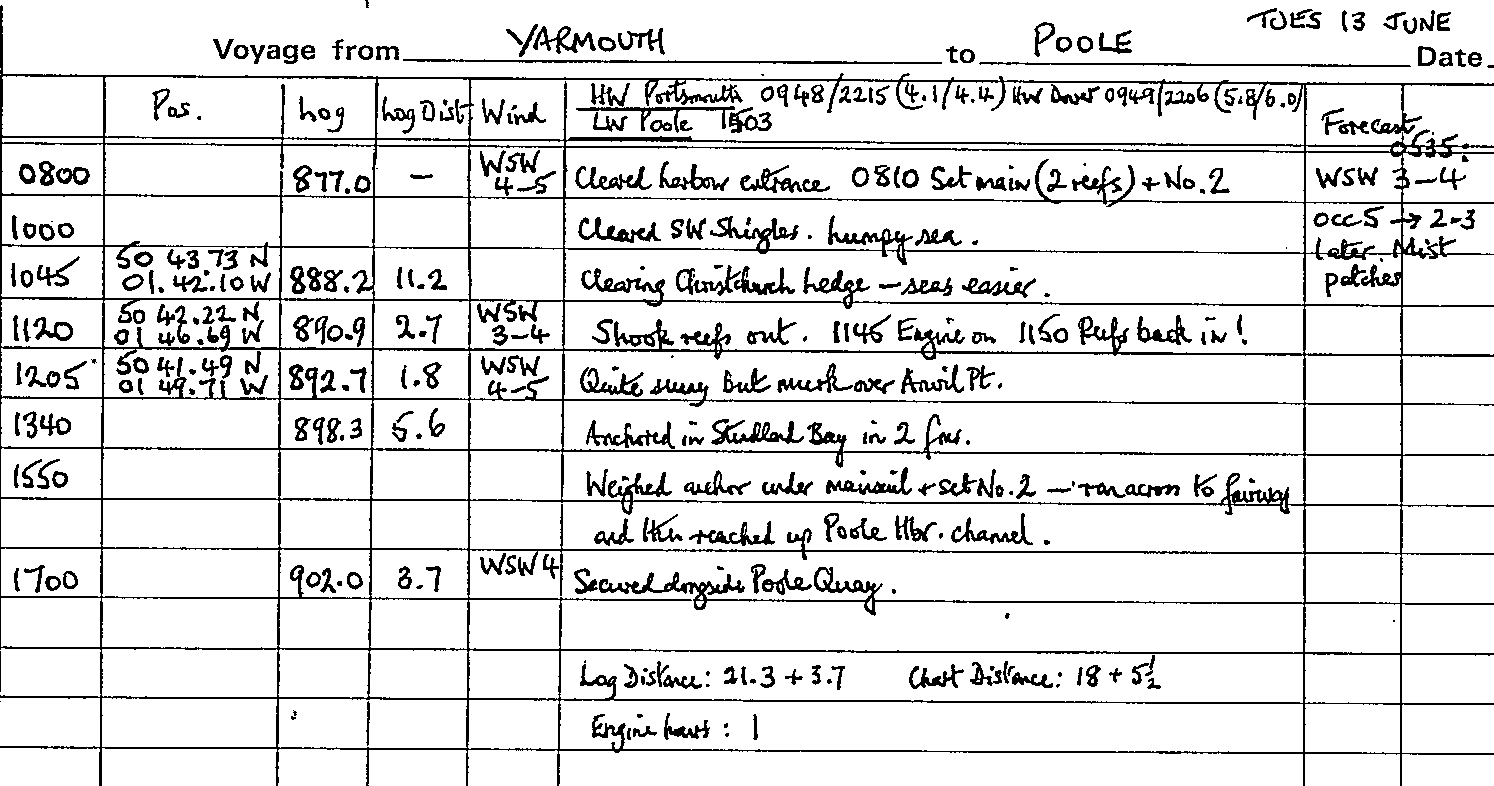 TUES 13 JUNE
Voyage from YARMOUTH to POOLE Date
Pos. Log Log Dist Wind HW Portsmouth 0948/2215 (4.1/4.4) HW Dover 0949/2206 (5.8/6.0)
LW Poole 1503 Forecast 0535:
0800 877.0 – WSW 4-5 Cleared harbour entrance 0810 Set main (2 reefs) + No.2 WSW 3-4
1000 Cleared SW Shingles. humpy sea. occ 5 → 2-3
later. Mist
1045 50 43.73 N 01.42.10 W 888.2 11.2 Clearing Christchurch Ledge – seas easier. patches
1120 50 42.22 N 01 46.69 W 890.9 2.7 WSW 3-4 Shook reefs out. 1145 Engine on 1150 Reefs back in!
1205 50 41.49 N 01 49.71 W 892.7 1.8 WSW 4-5 Quite sunny but murk over Anvil Pt.
1340 898.3 5.6 Anchored in Studland Bay in 2 fms.
1550 Weighed anchor under mainsail + set No.2 – ran across to fairway
and then reached up Poole Hbr. channel.
1700 902.0 3.7 WSW 4 Secured alongside Poole Quay.
Log Distance: 21.3 + 3.7 Chart Distance: 18 + 5½
Engine hours: 1